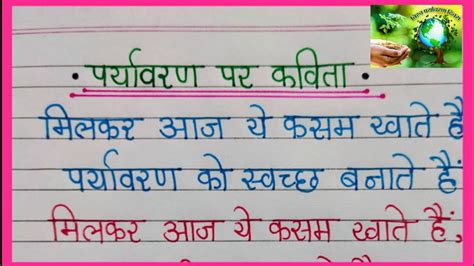 विश्व पर्यावरण दिवस
• पर्यावरण पर कविता •
मिलकर आज ये कसम खाते हैं
पर्यावरण को स्वच्छ बनाते हैं
मिलकर आज ये कसम खाते हैं,